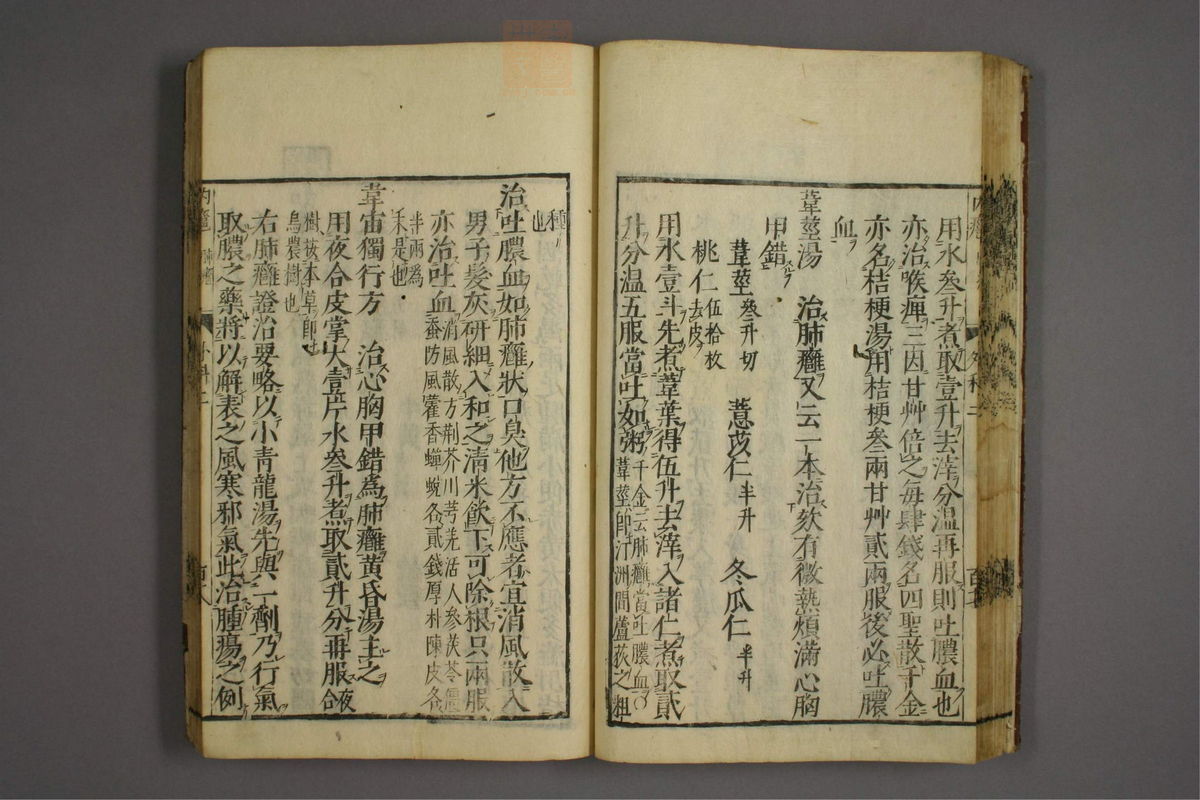 用水叁升煮取壹升去滓分温再服則吐膿血也
亦治喉痺三因甘艸倍之每肆錢名四聖散千金
亦名桔梗湯用桔梗叁兩甘艸貳兩服後必吐膿
血
葦莖湯 治肺癰又云一本治欬有微熱煩滿心胸
甲錯
葦莖叁升切 薏苡仁半升 冬瓜仁半升
桃仁伍拾枚去皮
用水壹斗先煮葦葉得伍升去滓入諸仁煮取貳
升分温五服當吐如粥千金云肺癰當吐膿血○
葦莖卽汀洲間蘆荻之粗
種
也
治吐膿血如肺癰狀口臭他方不應者宜消風散入
男子髮灰研細入和之清米飲下可除根只兩服
亦治吐血消風散方荆芥川芎羌活人參茯苓
蚕防風藿香蟬蛻各貳錢厚朴陳皮各
半兩爲
末是也
韋宙獨行方 治心胸甲錯爲肺癰黃昏湯主之
用夜合皮掌大壹片水叁升煮取貳升分再服夜合
樹菽本草卽
烏農樹也
右肺癰證治要略以小靑龍湯先與一劑乃行氣
取膿之藥將以解表之風寒邪氣此治腫瘍之例